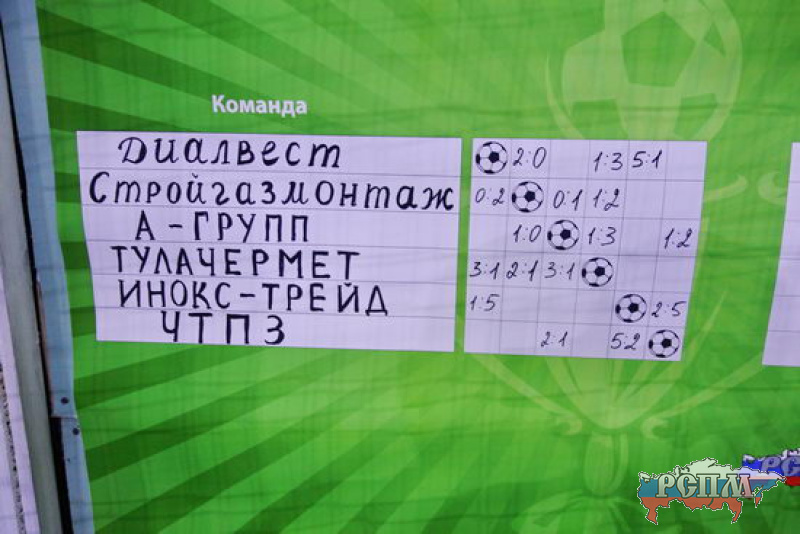 Команда
Диалвест 2:0 1:3 5:1
Стройгазмонтаж 0:2 0:1 1:2
А-ГРУПП 1:0 1:3 1:2
ТУЛАЧЕРМЕТ 3:1 2:1 3:1
ИНОКС-ТРЕЙД 1:5 2:5
ЧТПЗ 2:1 5:2
РСПМ